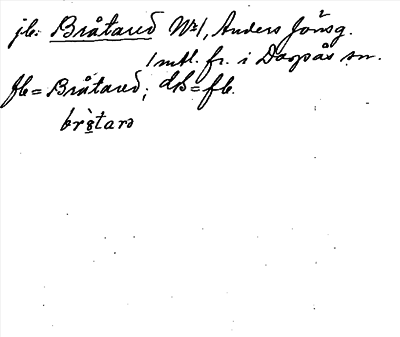 jb. Bråtared No 1, Anders Jönsg.
1 mtl. fr. i Dagsås sn.
fb = Bråtared; ds = fb.
brå̀tarə